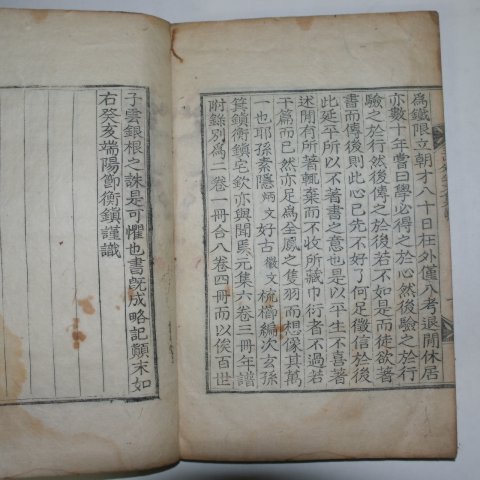 為鐵限立朝才八十日在外僅八考退閒休居
亦數十年嘗曰學必得之於心然後驗之於行
驗之於行然後傳之於後若不如是而徒欲著
書而傳後則此心已先不好了何足徵信於後
此延平所以不著書之意也是以平生不喜著
述間有所著輒棄而不收所藏巾衍者不過若
干篇而已然亦足為全鳳之隻羽而想像其萬
一也耶孫素隱炳文好古徽文梳櫛編次玄孫
箕鎮衡鎮宅欽亦與聞焉元集六卷三冊年譜
附錄別為二卷一冊合八卷四冊而以俟百世
子雲銀根之誅是可懼也書旣成略記顚末如
右癸亥端陽節衡鎮謹識